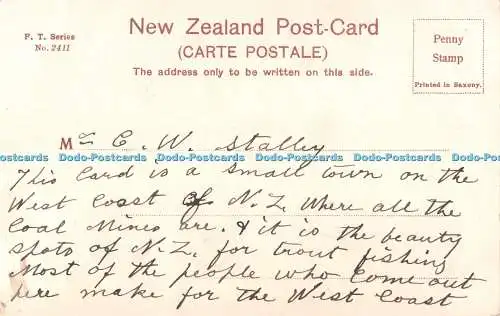 F. T. Series
No. 2411
New Zealand Post-Card
(CARTE POSTALE)
The address only to be written on this side.
Penny
Stamp
Printed in Saxony.
Mrs C. W. Stalley
Dodo-Postcards Dodo-Postcards Dodo-Postcards Dodo-Postcards Dodo-Postcards Dodo-Postcards
This Card is a small town on the
West Coast of N.Z. Where all the
Coal Mines are. & it is the beauty
spots of N.Z. for trout fishing
Most of the people who come out
here make for the West Coast